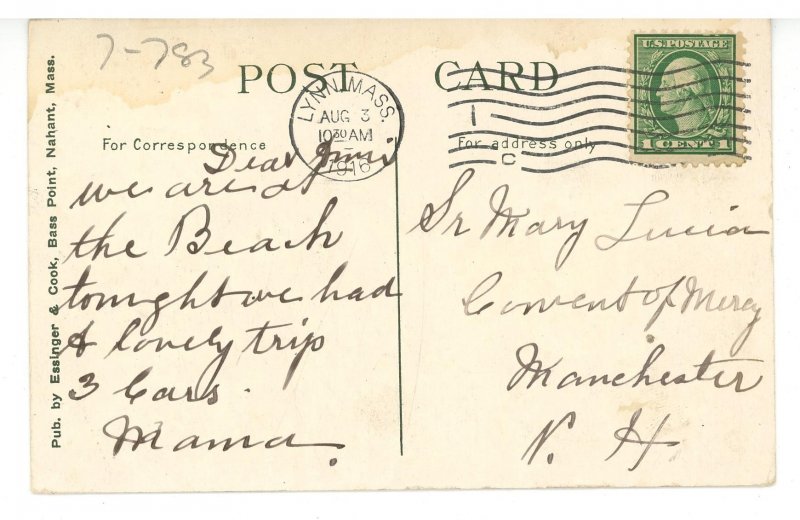 7-783
POST CARD
LYNN, MASS.
AUG 3
10 30 AM
1916
1
C
U.S. POSTAGE
1 CENT 1
For Correspondence
For address only
Dear
we are at
the Beach
tonight we had
A lovely trip
3 Cars.
Mama.
Sr Mary Lucia
Convent of Mercy
Manchester
N. H.
Pub. by Essinger & Cook, Bass Point, Nahant, Mass.